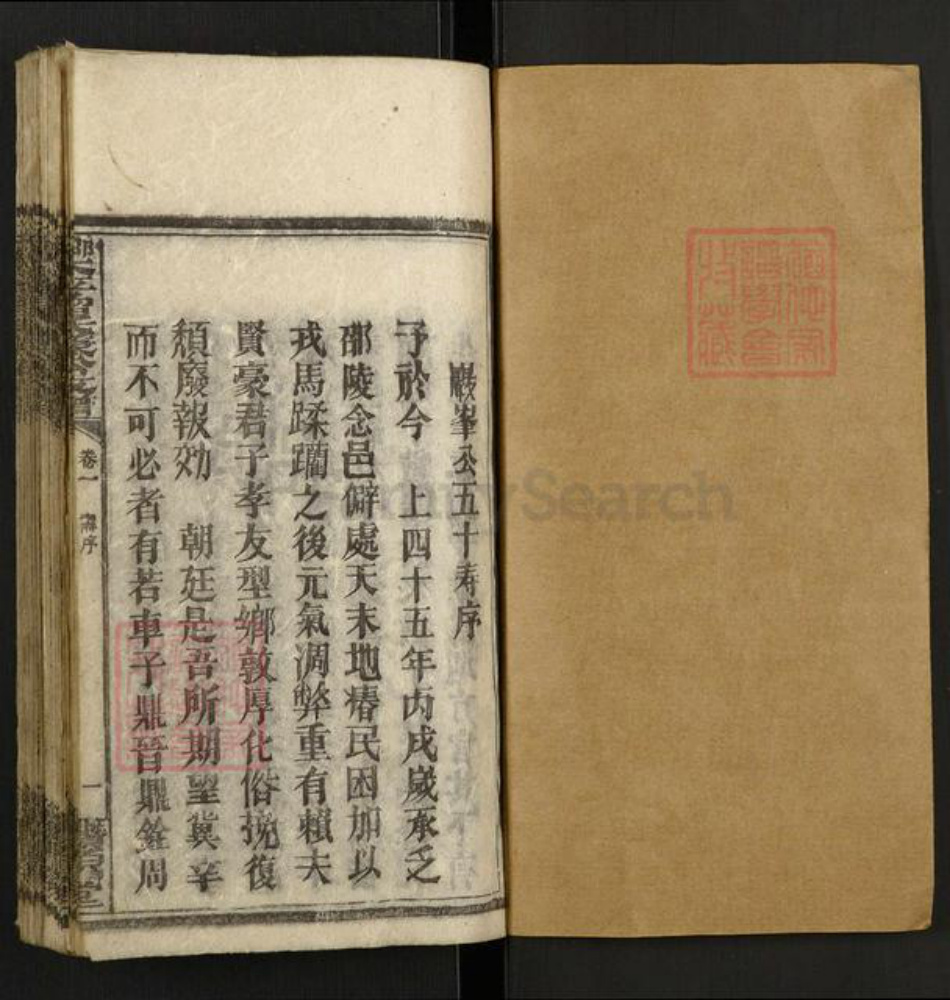 巖峯公五十壽序
予於今　上四十五年丙戌歲承乏
邵陵念邑僻處天末地瘠民困加以
戎馬蹂躪之後元氣凋弊重有賴夫
賢豪君子孝友型鄉敦厚化俗挽復
頹廢報効　朝廷是吾所期望冀幸
而不可必者有若車子鼎晉鼎銓周
卷一
壽序
一